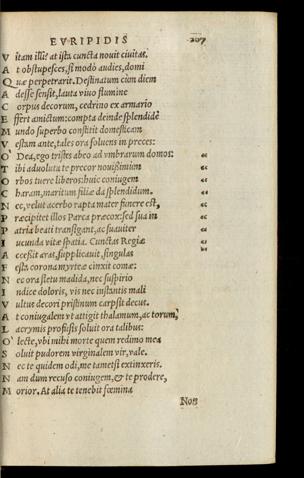 EVRIPIDIS 207
V itam illi? at ista cuncta nouit ciuitas.
A t obstupesces, si modò audies, domi
Q uæ perpetrarit. Destinatum cùm diem
A desse sensit, lauta viuo flumine
C orpus decorum, cedrino ex armario
E ffert amictum: compta deinde splendidè
M undo superbo constitit domesticam
V estam ante, tales ora soluens in preces:
O' Dea, ego tristes abeo ad vmbrarum domos: "
T ibi aduoluta te precor nouissimùm "
O rbos tuere liberos: huic coniugem "
C haram, maritum filiæ da splendidum. "
N ec, velut acerbo rapta mater funere est, "
P ræcipitet illos Parca præcox: sed sua in "
P atria beati transigant, ac suauiter "
I ucunda vitæ spatia. Cunctas Regiæ "
A ccessit aras, supplicauit, singulas "
F esta corona myrteæ cinxit comæ:
N ec ora fletu madida, nec suspirio
I ndice doloris, vis nec instantis mali
V ultus decori pristinum carpsit decus.
A t coniugalem vt attigit thalamum, ac torum,
L acrymis profusis soluit ora talibus:
O' lecte, vbi mihi morte quem redimo mea
S oluit pudorem virginalem vir, vale.
N ec te quidem odi, me tametsi extinxeris.
N am dum recuso coniugem, & te prodere,
M orior. At alia te tenebit fœmina
Non